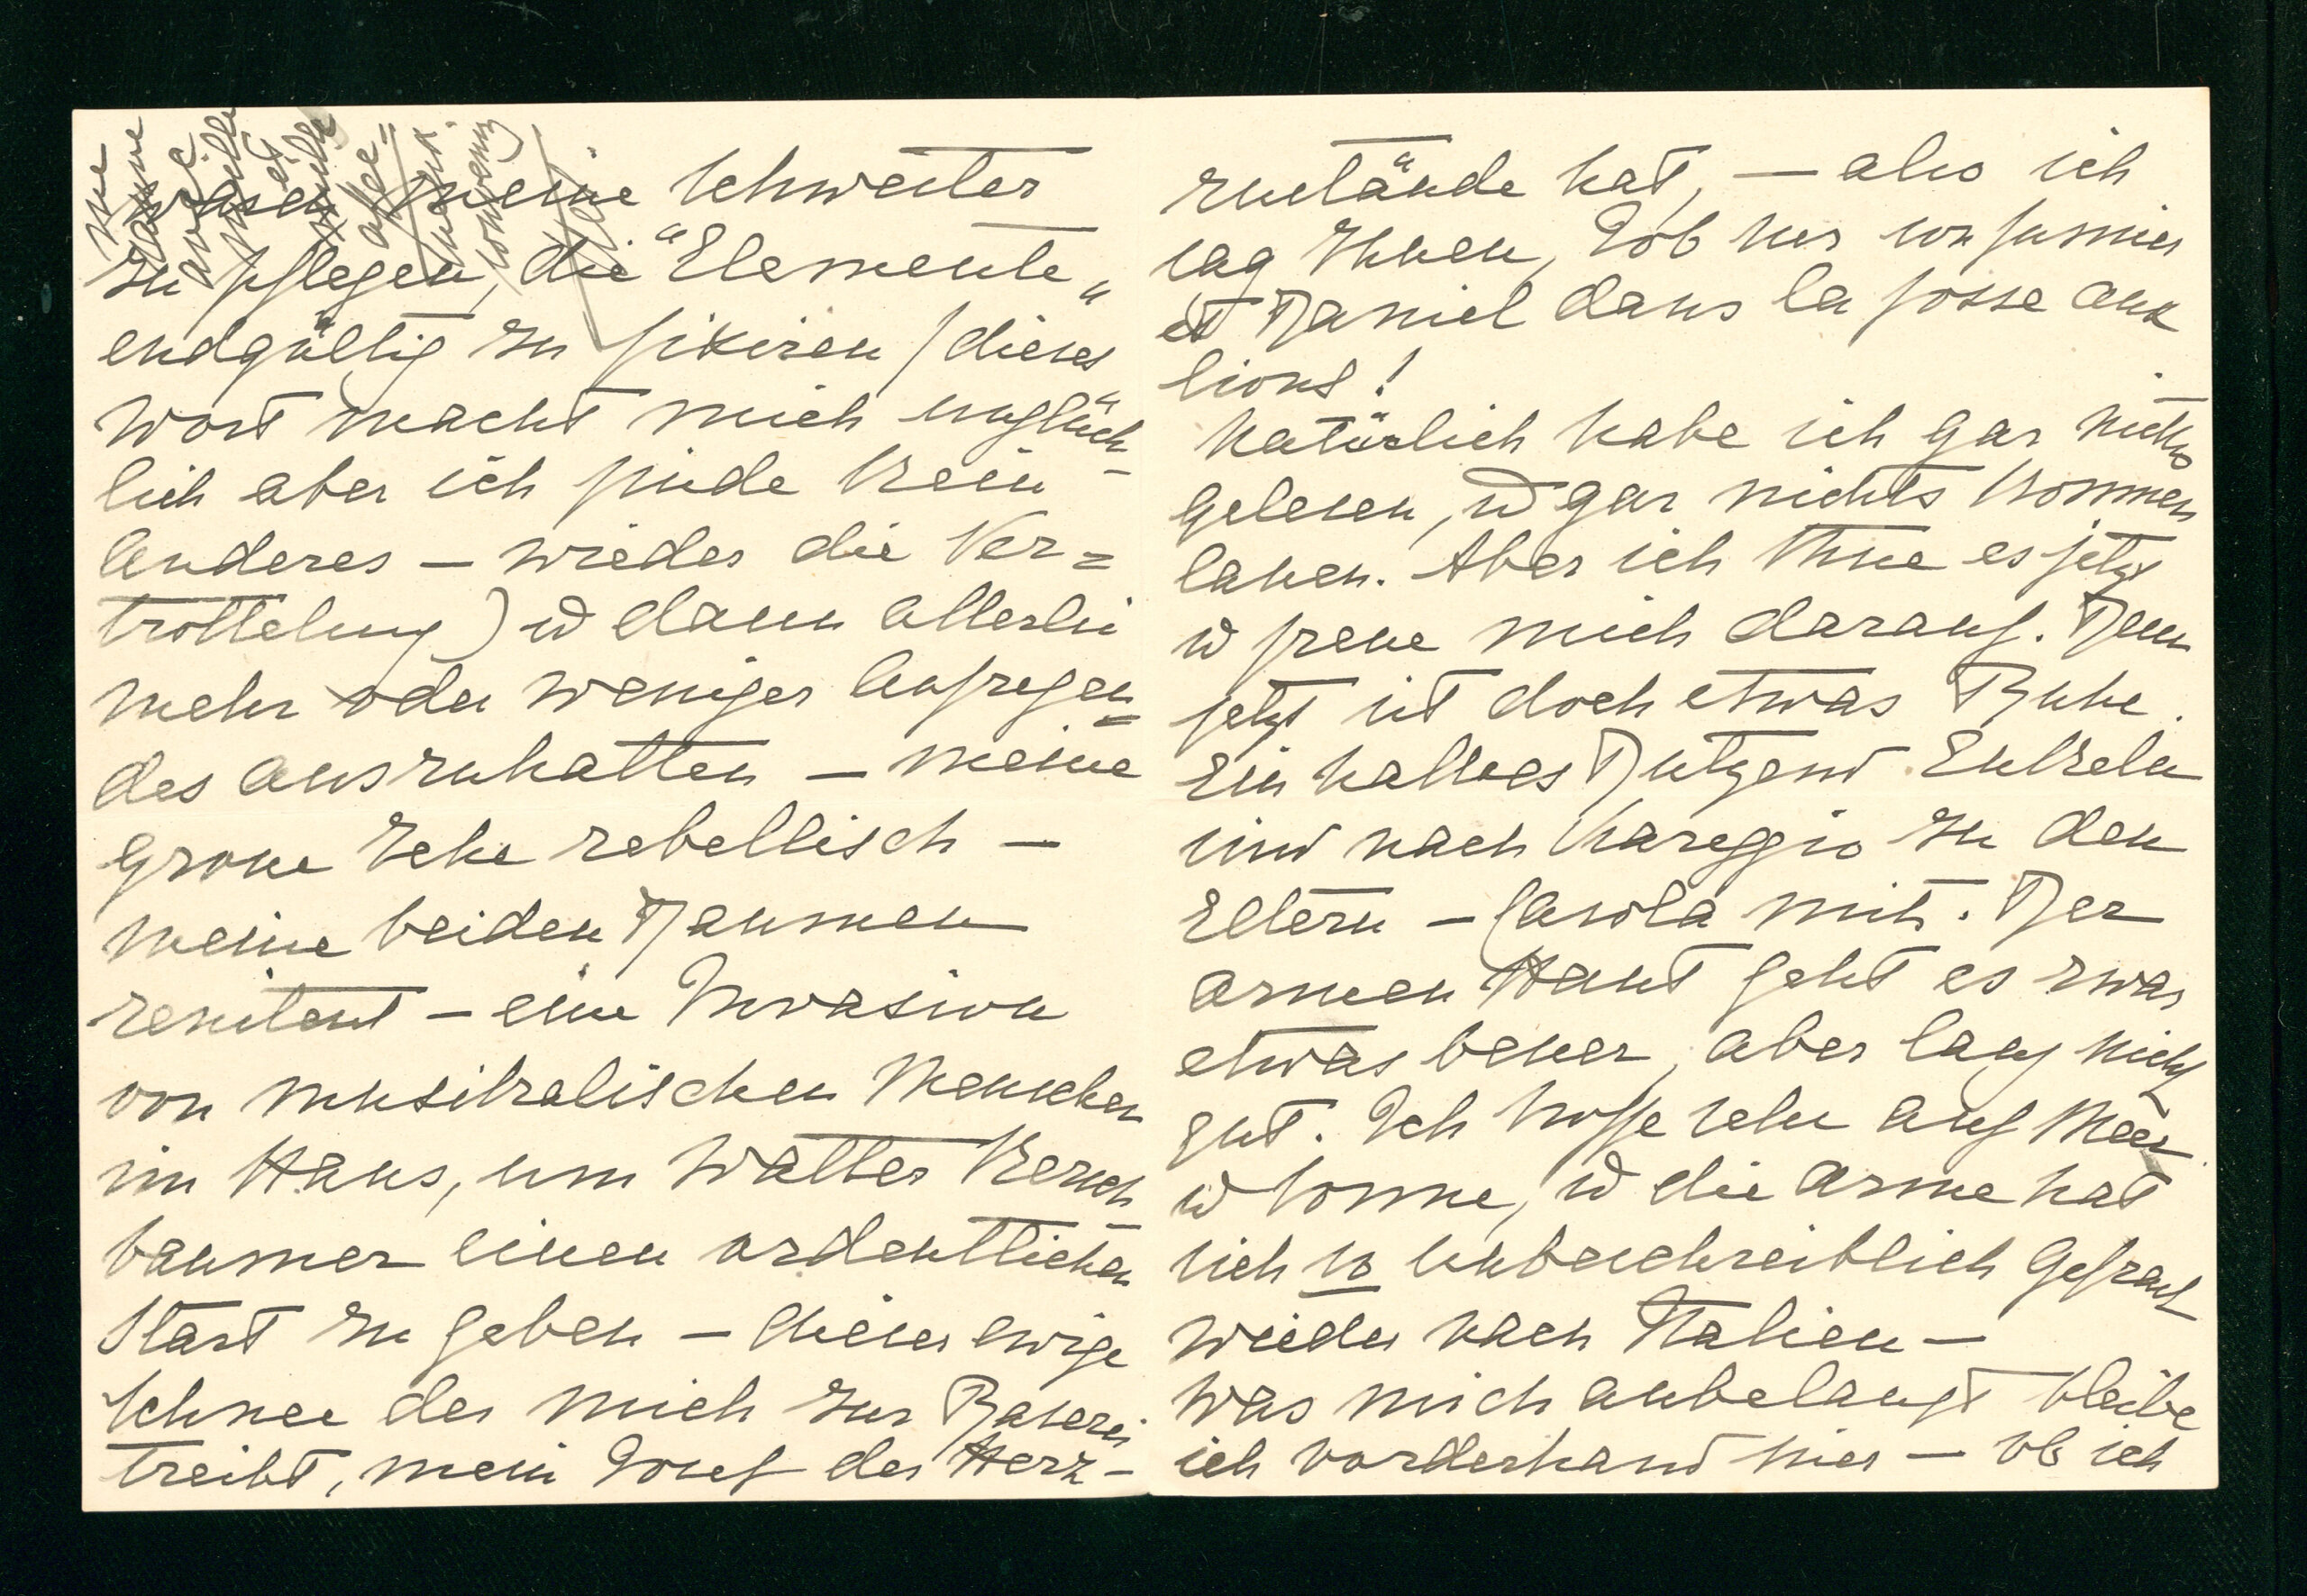 waren meine Schwester
zu pflegen, die "Elemente"
endgültig zu fixiren (dieses
Wort macht mich unglück-
lich aber ich finde kein
Anderes – wieder die Ver=
trottelung) u dann allerlei
mehr oder weniger Aufregen=
des auszuhalten – meine
grosse Zehe rebellisch –
meine beiden Daumen
renitent – eine Invasion
von musikalischen Menschen
im Haus, um Walter Kersch
baumer einen ordentlichen
Start zu geben – dieser ewige
Schnee der mich zur Raserei
treibt, mein Josef der Herz-
zustände hat, – also ich
sag Ihnen, Job sur son fumier
et Daniel dans la fosse aux
lions!
Natürlich habe ich gar nichts
gelesen, u gar nichts kommen
lassen. Aber ich thue es jetzt
u freue mich darauf. Denn
jetzt ist doch etwas Ruhe.
Ein halbes Dutzend Enkeln
sind nach Viareggio zu den
Eltern – Carola mit. Der
armen Haut geht es zwar
etwas besser, aber lang nicht
gut. Ich hoffe sehr auf Meer
u Sonne, u die Arme hat
sich so unbeschreiblich gefreut
wieder nach Italien –
Was mich anbelangt bleibe
ich vorderhand hier – ob ich